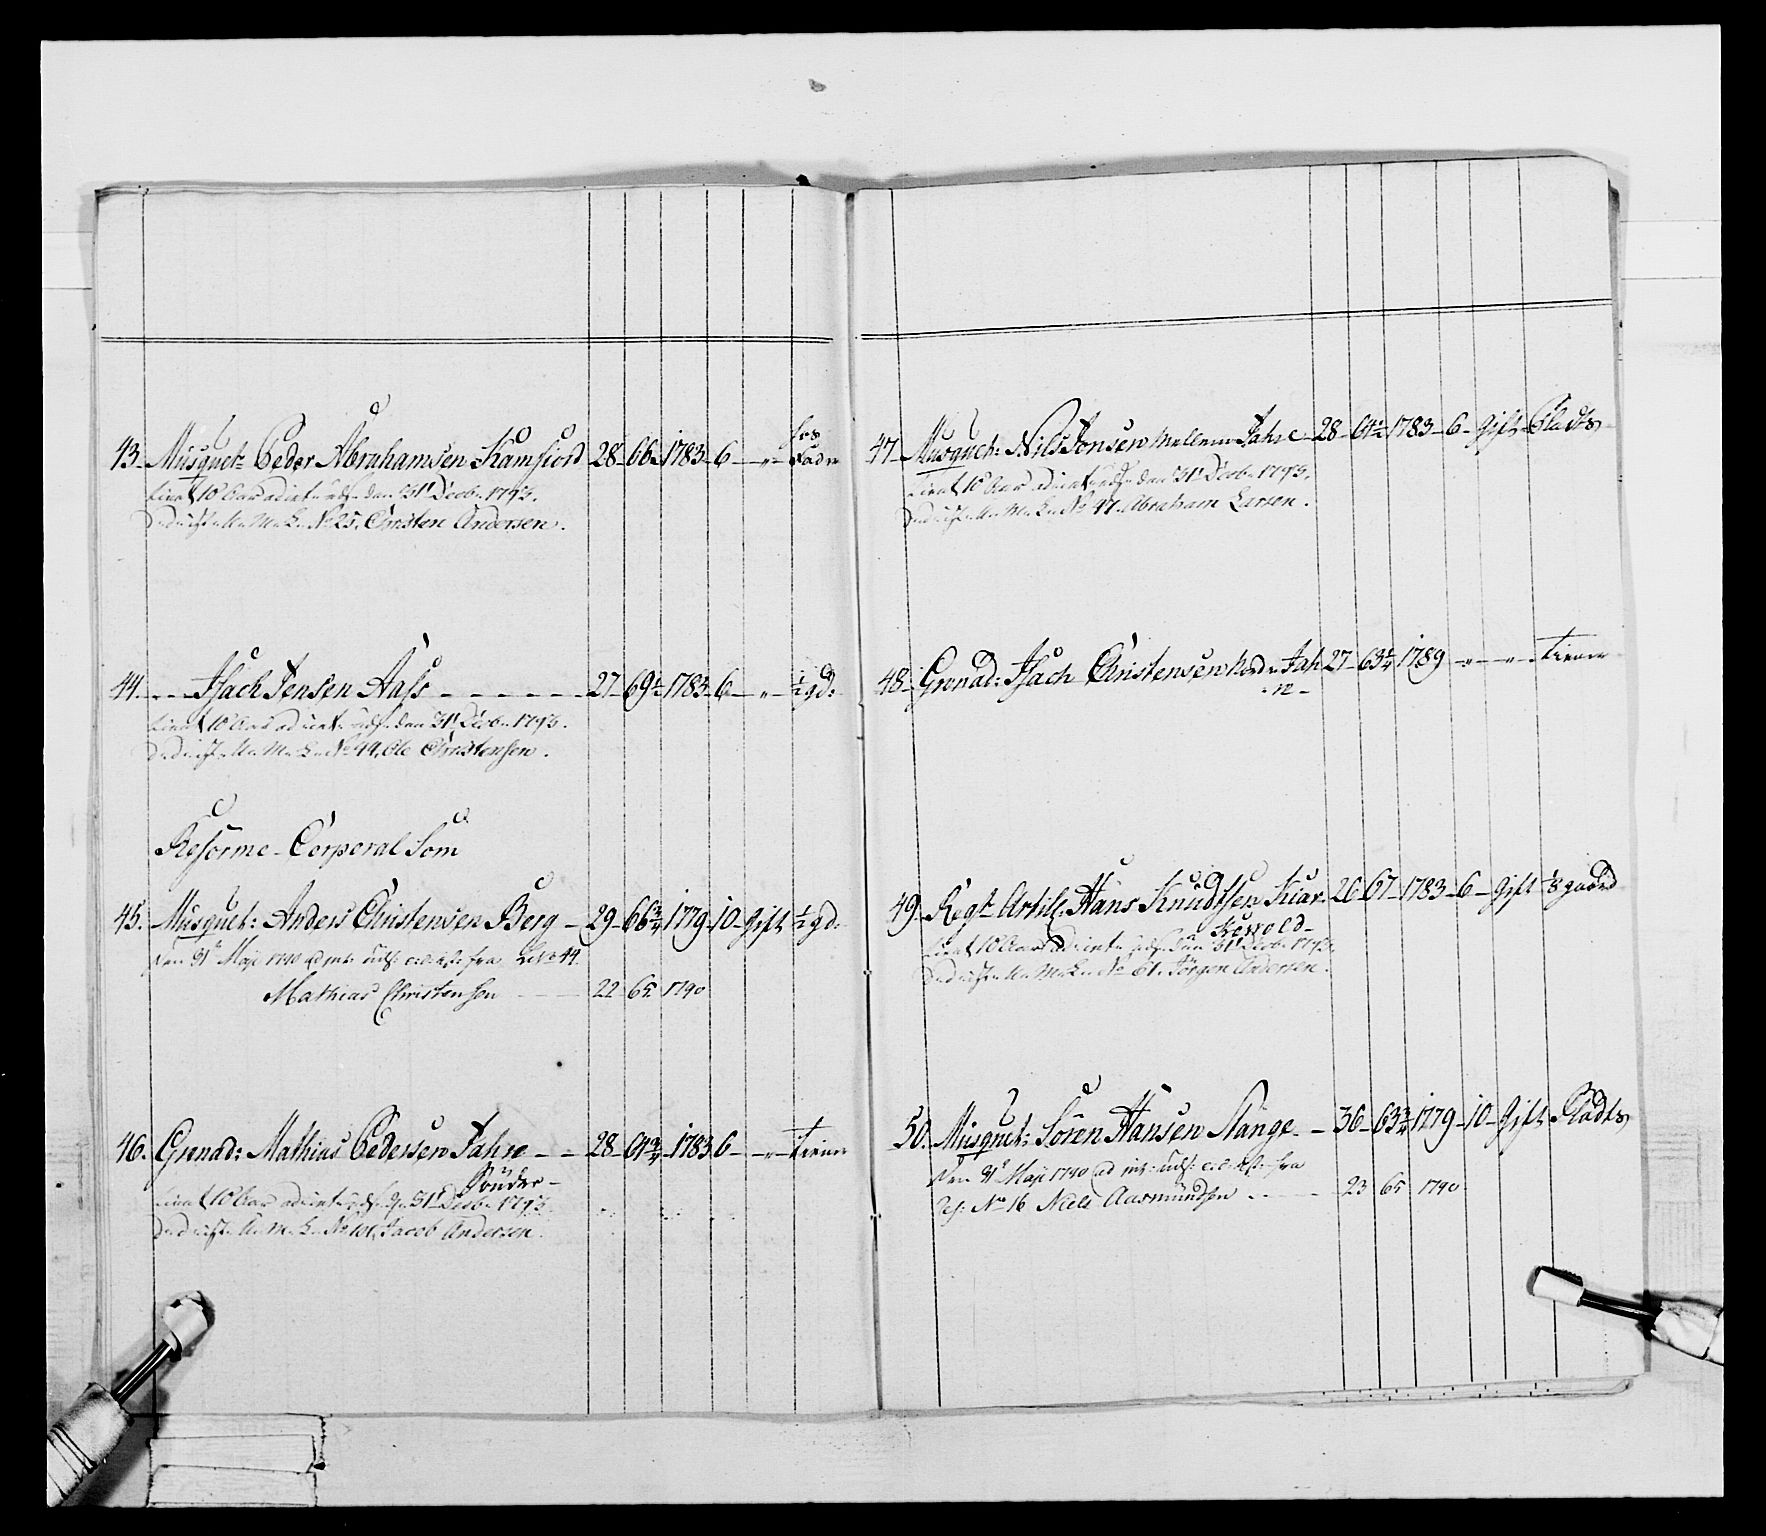 hos
43. Musquet: Peder Abrahamsen Kamfiord 28 - 66 - 1783 - 6 - " - Fader
tient 10 Aar ad int: uds: den 31t Decb: 1793.
D: d: ist: A: M: L: No 25, Christen Andersen.
44. - - Isach Jensen Aass - - - - - - 27 - 69½ - 1783 - 6 - " - ½ gd:
tient 10 Aar ad int: uds: den 31t Decb: 1793.
D: d: ist: A: M: L: No 44, Ole Christensen.
Reforme - Corporal Som
45. Musquet: Anders Christensen Berg - 29 - 66¾ - 1779 - 10 - Gift ½ gd:
Den 31t Maji 1790 ad int: uds: fra No 44
Mathias Christensen - - - 22 - 65 - 1790
46. Grenad: Mathias Pedersen Jahre - - 28 - 64¾ - 1783 6 - " - tiener
Sönder -
tient 10 Aar ad int: uds: d: 31t Decb: 1793
D: d: ist: A: M: L: No 101, Jacob Andersen.
47. Musquet: Nils Jonsen Mellem Jahre - 28 - 64½ - 1783 - 6 - Gift - Plads
tient 10 Aar ad int: uds: den 31t Decb: 1793.
D: d: ist: A: M: L: No 47. Abraham Larsen.
48. Grenad: Isach Christensen Nord: Jah 27 - 63¼ - 1789 - " - " - tiener
- re -
49. Regt Artill: Hans Knudtsen Kiær - 26 - 67 - 1783 - 6 - Gift ⅛ gaard
tient 10 Aar ad int: uds: den 31t Decb: 1793.
D: d: ist: A: M: L: No 61. Jörgen Andersen.
50. Musquet: Sören Hansen Stange - - 36 - 63¾ - 1779 - 10 - Gift Plads
Den 31t Maji 1790 ad int: uds: fra
No 16 Niels Aasmundsen - - - 23 65 1790